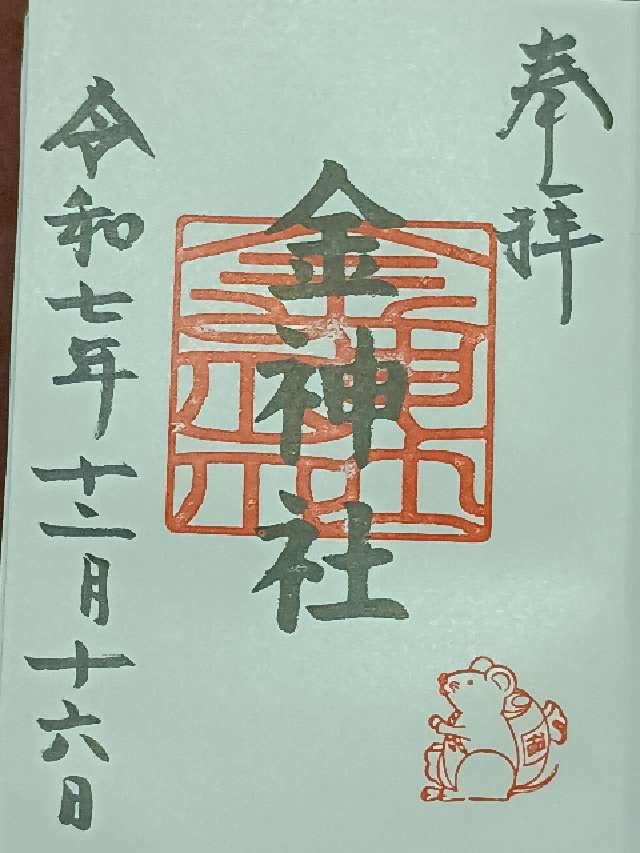 奉拝
金神社
令和七年十二月十六日